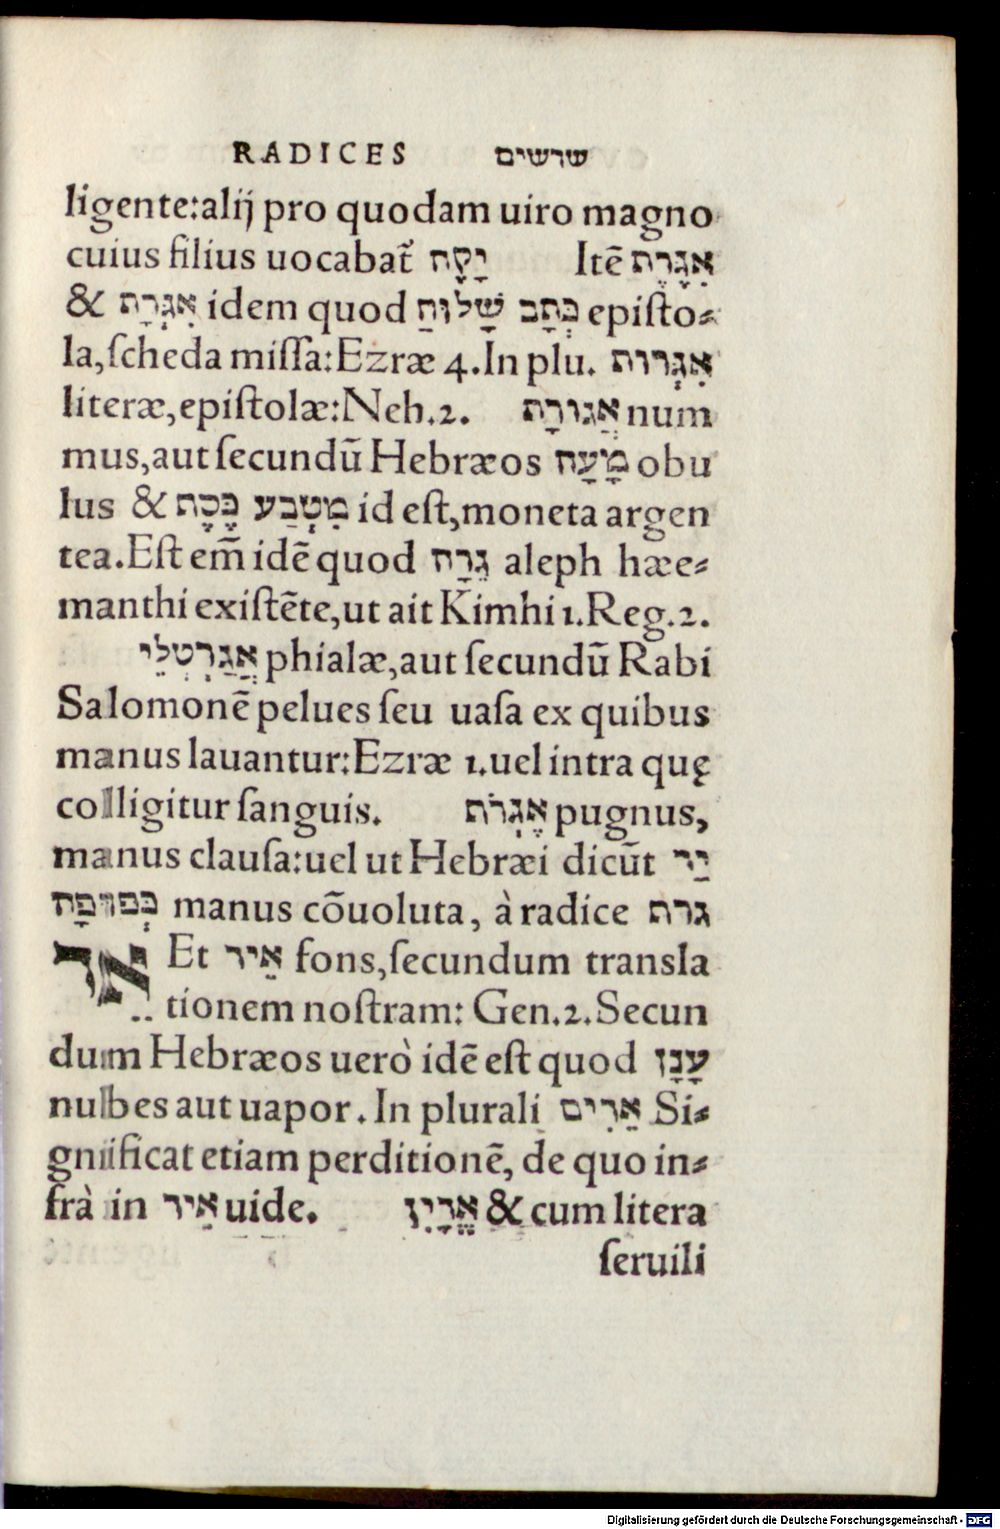 RADICES שרשים
ligente:alij pro quodam uiro magno
cuius filius uocabat̃ יָקֶה Itē אִגֶּרֶת
& אִגְּרָת idem quod כְּתָב שָׁלוּחַ episto⸗
la,ſcheda miſſa:Ezræ 4.In plu. אִגְּרוֹת
literæ,epiſtolæ:Neh.2. אֲגוֹרָת num
mus,aut ſecundũ Hebræos מָעָה obu
lus & מִטְבַּע כֶּסֶף id eſt,moneta argen
tea.Eſt em̃ idē quod גֵרָה aleph hæe⸗
manthi exiſtēte,ut ait Kimhi 1.Reg.2.
אֲגַרְטְלֵי phialæ,aut ſecundũ Rabi
Salomonē pelues ſeu uaſa ex quibus
manus lauantur:Ezræ 1.uel intra quę
colligitur ſanguis. אֶגְרֹת pugnus,
manus clauſa:uel ut Hebræi dicũt יַד
כְּפוּפָה manus cōuoluta, à radice גרת
אד Et איד fons,ſecundum transla
tionem noſtram: Gen.2.Secun
dum Hebræos uerò idē eſt quod עָנָן
nubes aut uapor.In plurali אֵדִים Si⸗
gnificat etiam perditionē, de quo in⸗
frà in איד uide. אֱדָיִן & cum litera
ſeruili
Digitalisierung gefördert durch die Deutsche Forschungsgemeinschaft - DFG